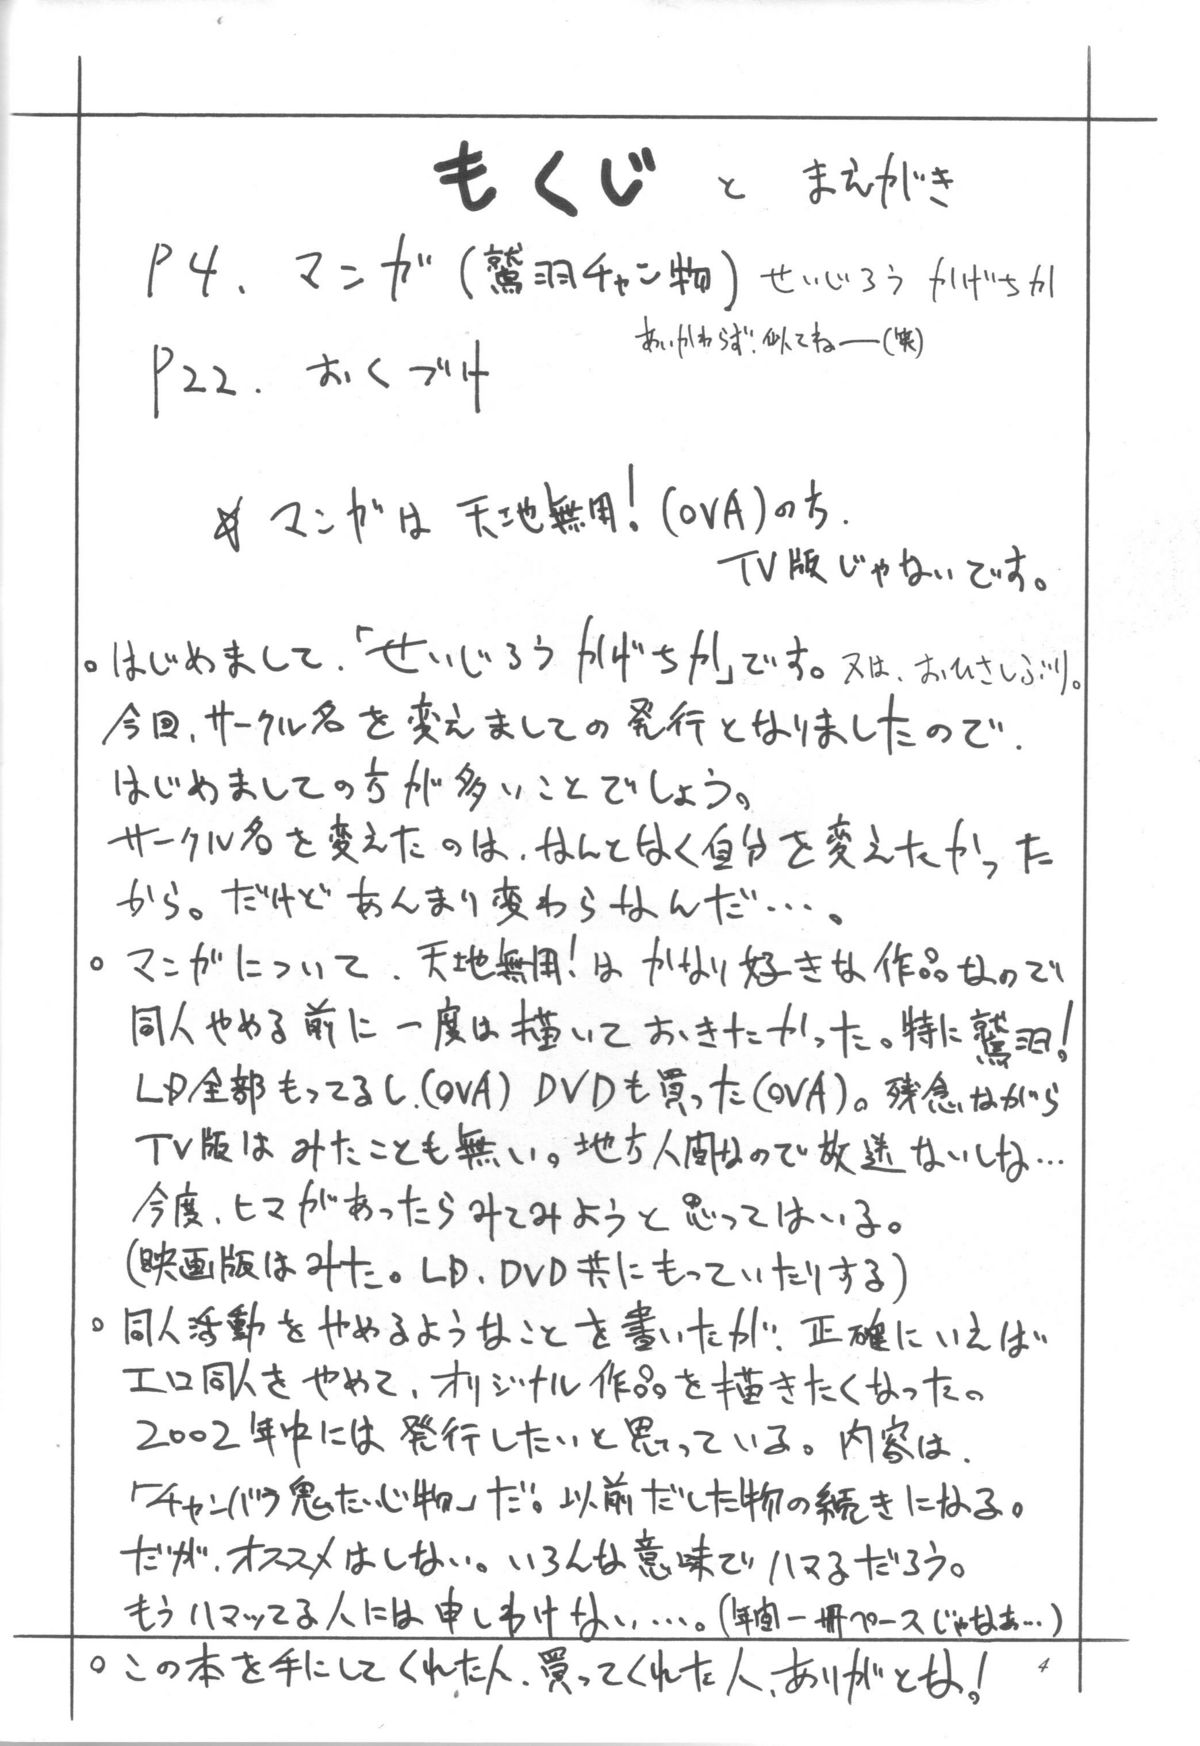 もくじ と まえがき
P4. マンガ(鷲羽チャン物) せいじろう かげちか
あいかわらず、似てねー(笑)
P22. おくづけ
☆ マンガは 天地無用!(OVA)の方.
TV版じゃないです。
○はじめまして.「せいじろう かげちか」です。又は、おひさしぶり。
今回、サークル名を変えましての発行となりましたので、
はじめましての方が多いことでしょう。
サークル名を変えたのは、なんとなく自分を変えたかった
から。だけどあんまり変わらなんだ…。
○ マンガについて、天地無用!は かなり好きな作品なので
同人やめる前に一度は描いておきたかった。特に鷲羽!
LD全部もってるし、(OVA) DVDも買った(OVA)。残念ながら
TV版は みたことも無い。地方人間なので放送ないしな…
今度、ヒマがあったらみてみようと思ってはいる。
(映画版はみた。LD、DVD共にもっていたりする)
○ 同人活動をやめるようなことを書いたが、正確にいえば
エロ同人をやめて、オリジナル作品を描きたくなったの。
2002年中には発行したいと思っている。内容は、
「チャンバラ鬼たいじ物」だ。以前だした物の続きになる。
だが、オススメはしない。いろんな意味でハマるだろう。
もうハマッてる人には申しわけない…。(年間一冊ペースじゃなぁ…)
○ この本を手にしてくれた人、買ってくれた人、ありがとな!
4